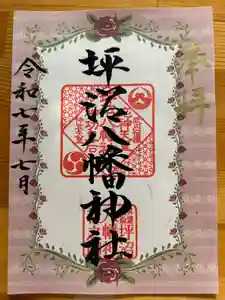 奉拝
坪沼八幡神社
令和七年七月